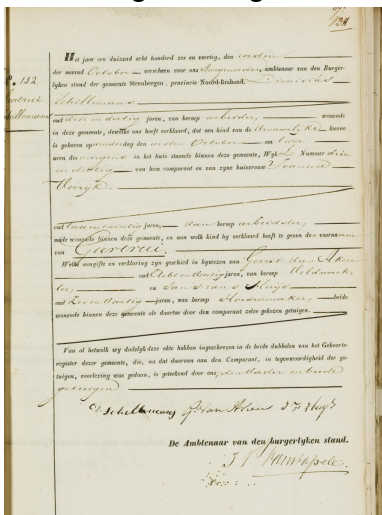 124
Het jaar een duizend acht honderd zes en veertig, den
der maand October verscheen voor ons Burgemeester, ambtenaar van den Burger-
lyken stand der gemeente Steenbergen, provincie Noord-Braband,
N°. 132
Schellemans
Schellemans
oud dertig jaren, van beroep arbeider, wonende
in deze gemeente, dewelke ons heeft verklaard, dat een kind van de Vrouwelyke kunne
is geboren op donderdag den October om twee
uren des morgens in het huis staande binnen deze gemeente, Wyk Nummer drie
en dertig van hem comparant en van zyne huisvrouw Joanna
oud jaren, van beroep arbeidster,
mede wonende binnen deze gemeente, en aan welk kind hy verklaard heeft te geven den voornamen
van
Welke aangifte en verklaring zyn geschied in bywezen van Gerrit van Aken
oud jaren, van beroep Veldwach-
ter, en Jan Frans Huijs
oud Zeven dertig jaren, van beroep beide
wonende binnen deze gemeente als daartoe door den comparant zelve gekozen getuigen.
Van al hetwelk wy dadelyk deze akte hebben ingeschreven in de beide dubbelen van het Geboorte-
register dezer gemeente, die, na dat daarvan aan den Comparant, in tegenwoordigheid der ge-
tuigen, voorlezing was gedaan, is geteekend door ons, den Vader en beide
getuigen
D. Schellemans G. van Aken J F Huijs
De Ambtenaar van den burgerlyken stand.